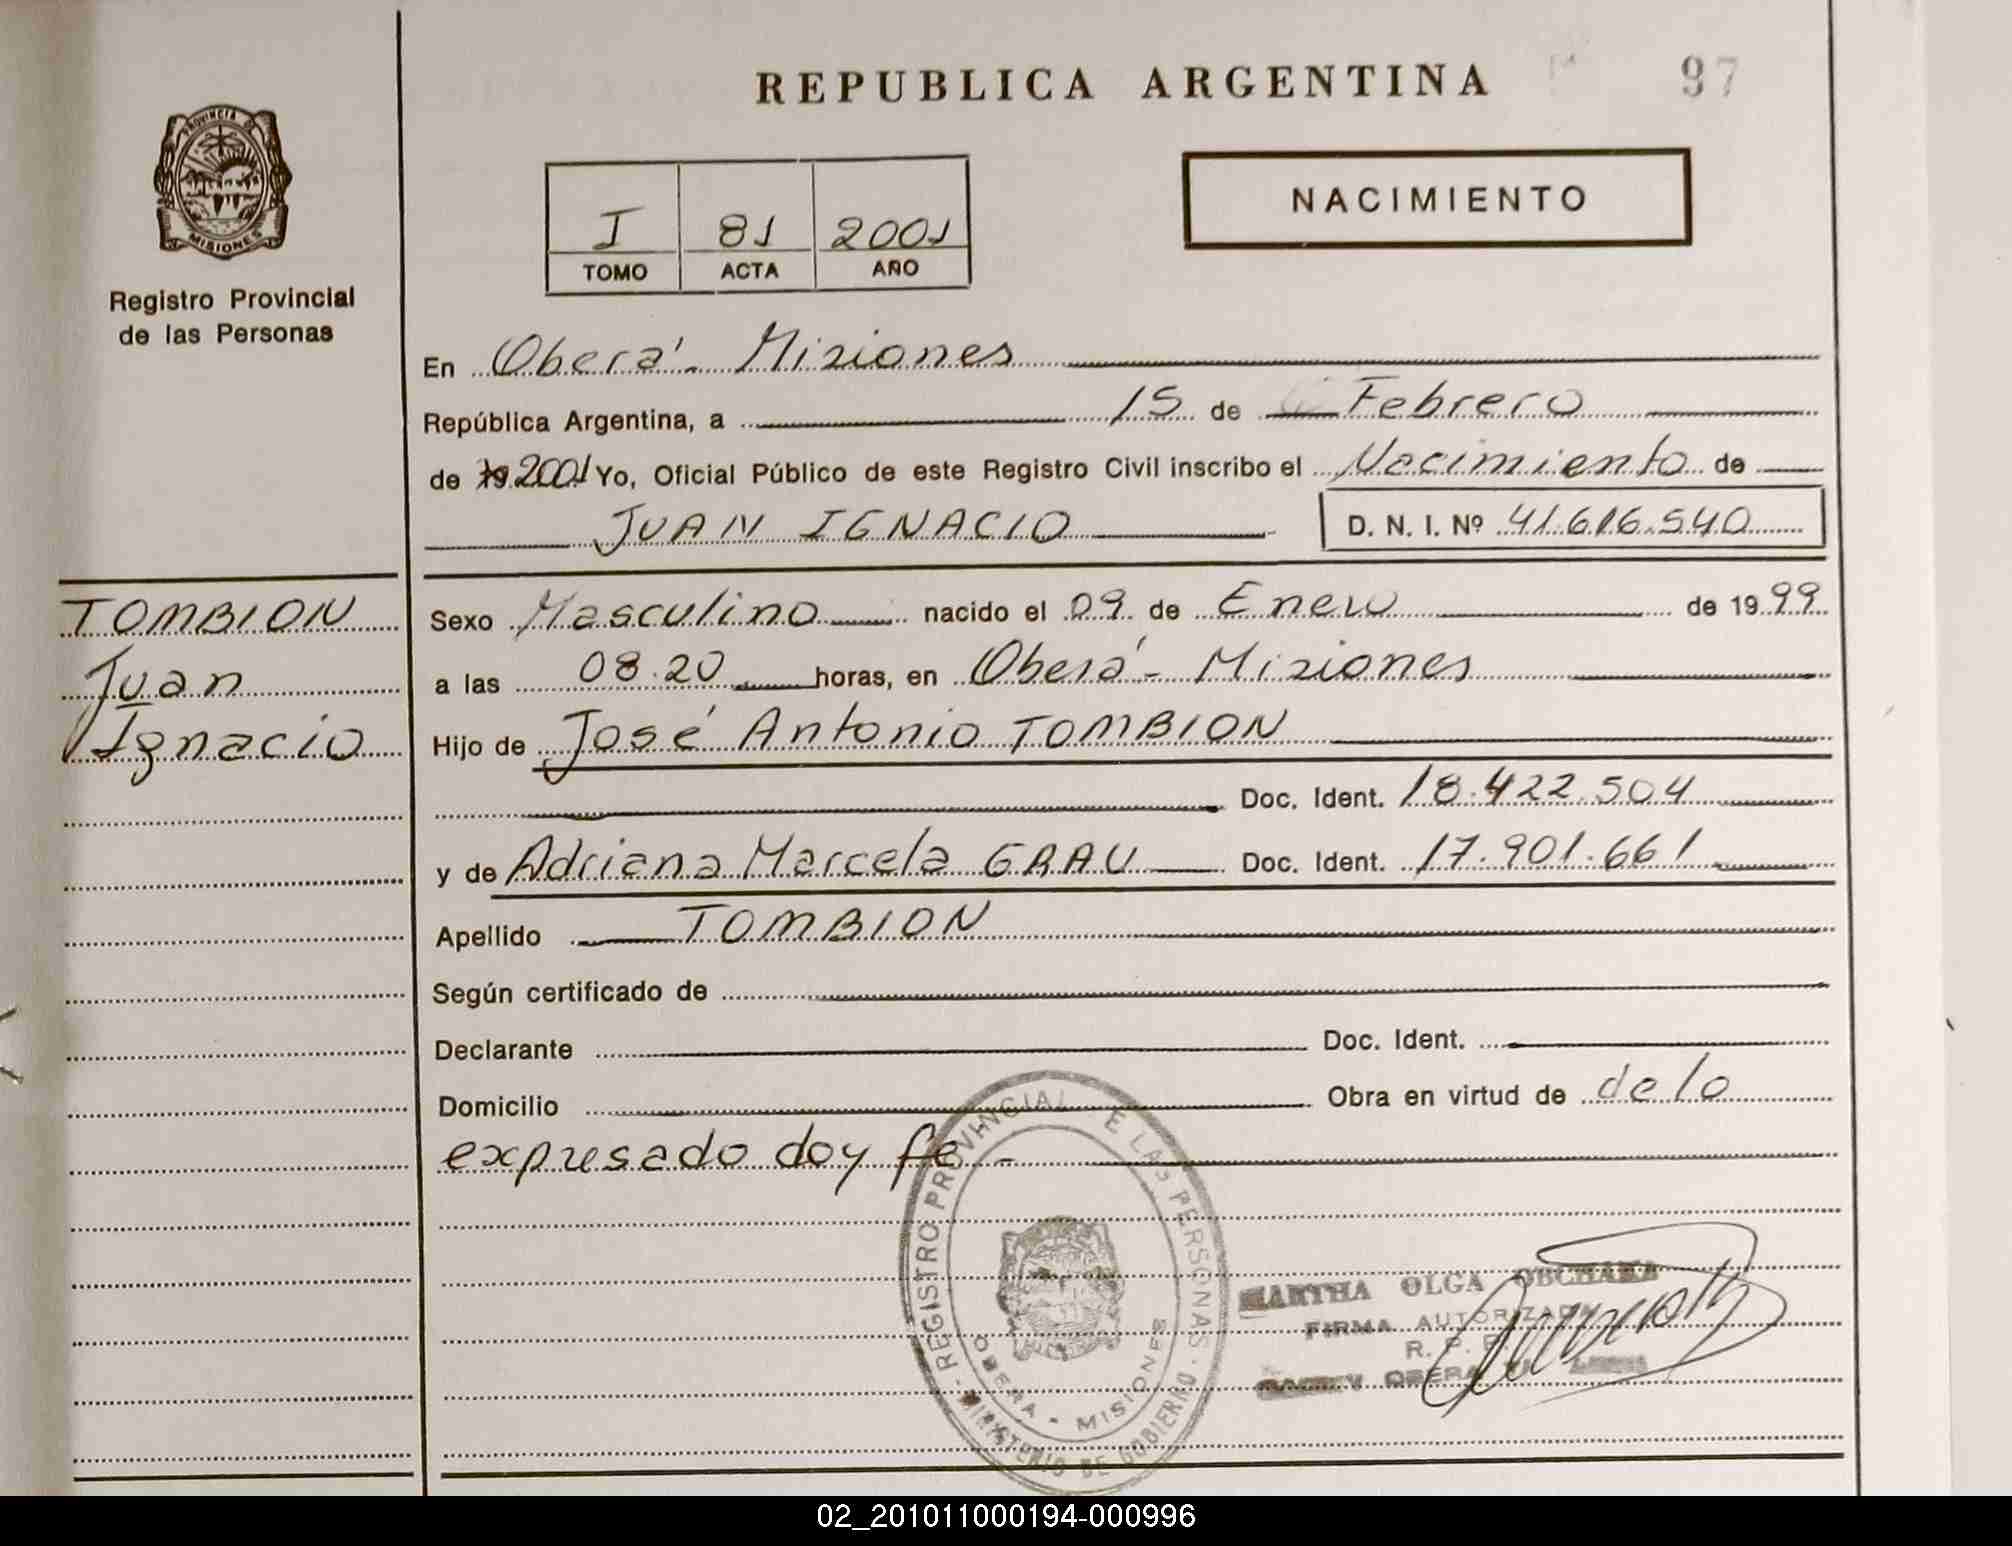 REPUBLICA ARGENTINA
97
PROVINCIA DE
MISIONES
Registro Provincial
de las Personas
I 81 2001
TOMO ACTA AÑO
NACIMIENTO
En Oberá - Misiones
República Argentina, a 15 de Febrero
de 19 2001 Yo, Oficial Público de este Registro Civil inscribo el Nacimiento de
JUAN IGNACIO D. N. I. Nº 41.616.540
TOMBION
Juan
Ignacio
Sexo Masculino nacido el 09 de Enero de 19 99
a las 08.20 horas, en Oberá - Misiones
Hijo de José Antonio TOMBION
Doc. Ident. 18.422.504
y de Adriana Marcela GRAU Doc. Ident. 17.901.661
Apellido TOMBION
Según certificado de
Declarante Doc. Ident.
Domicilio Obra en virtud de de lo
expresado doy fe -
REGISTRO PROVINCIAL DE LAS PERSONAS
OBERA - MISIONES
MINISTERIO DE GOBIERNO
MARTHA OLGA
FIRMA AUTORIZADA
R. P. P.
OBERA
02_201011000194-000996